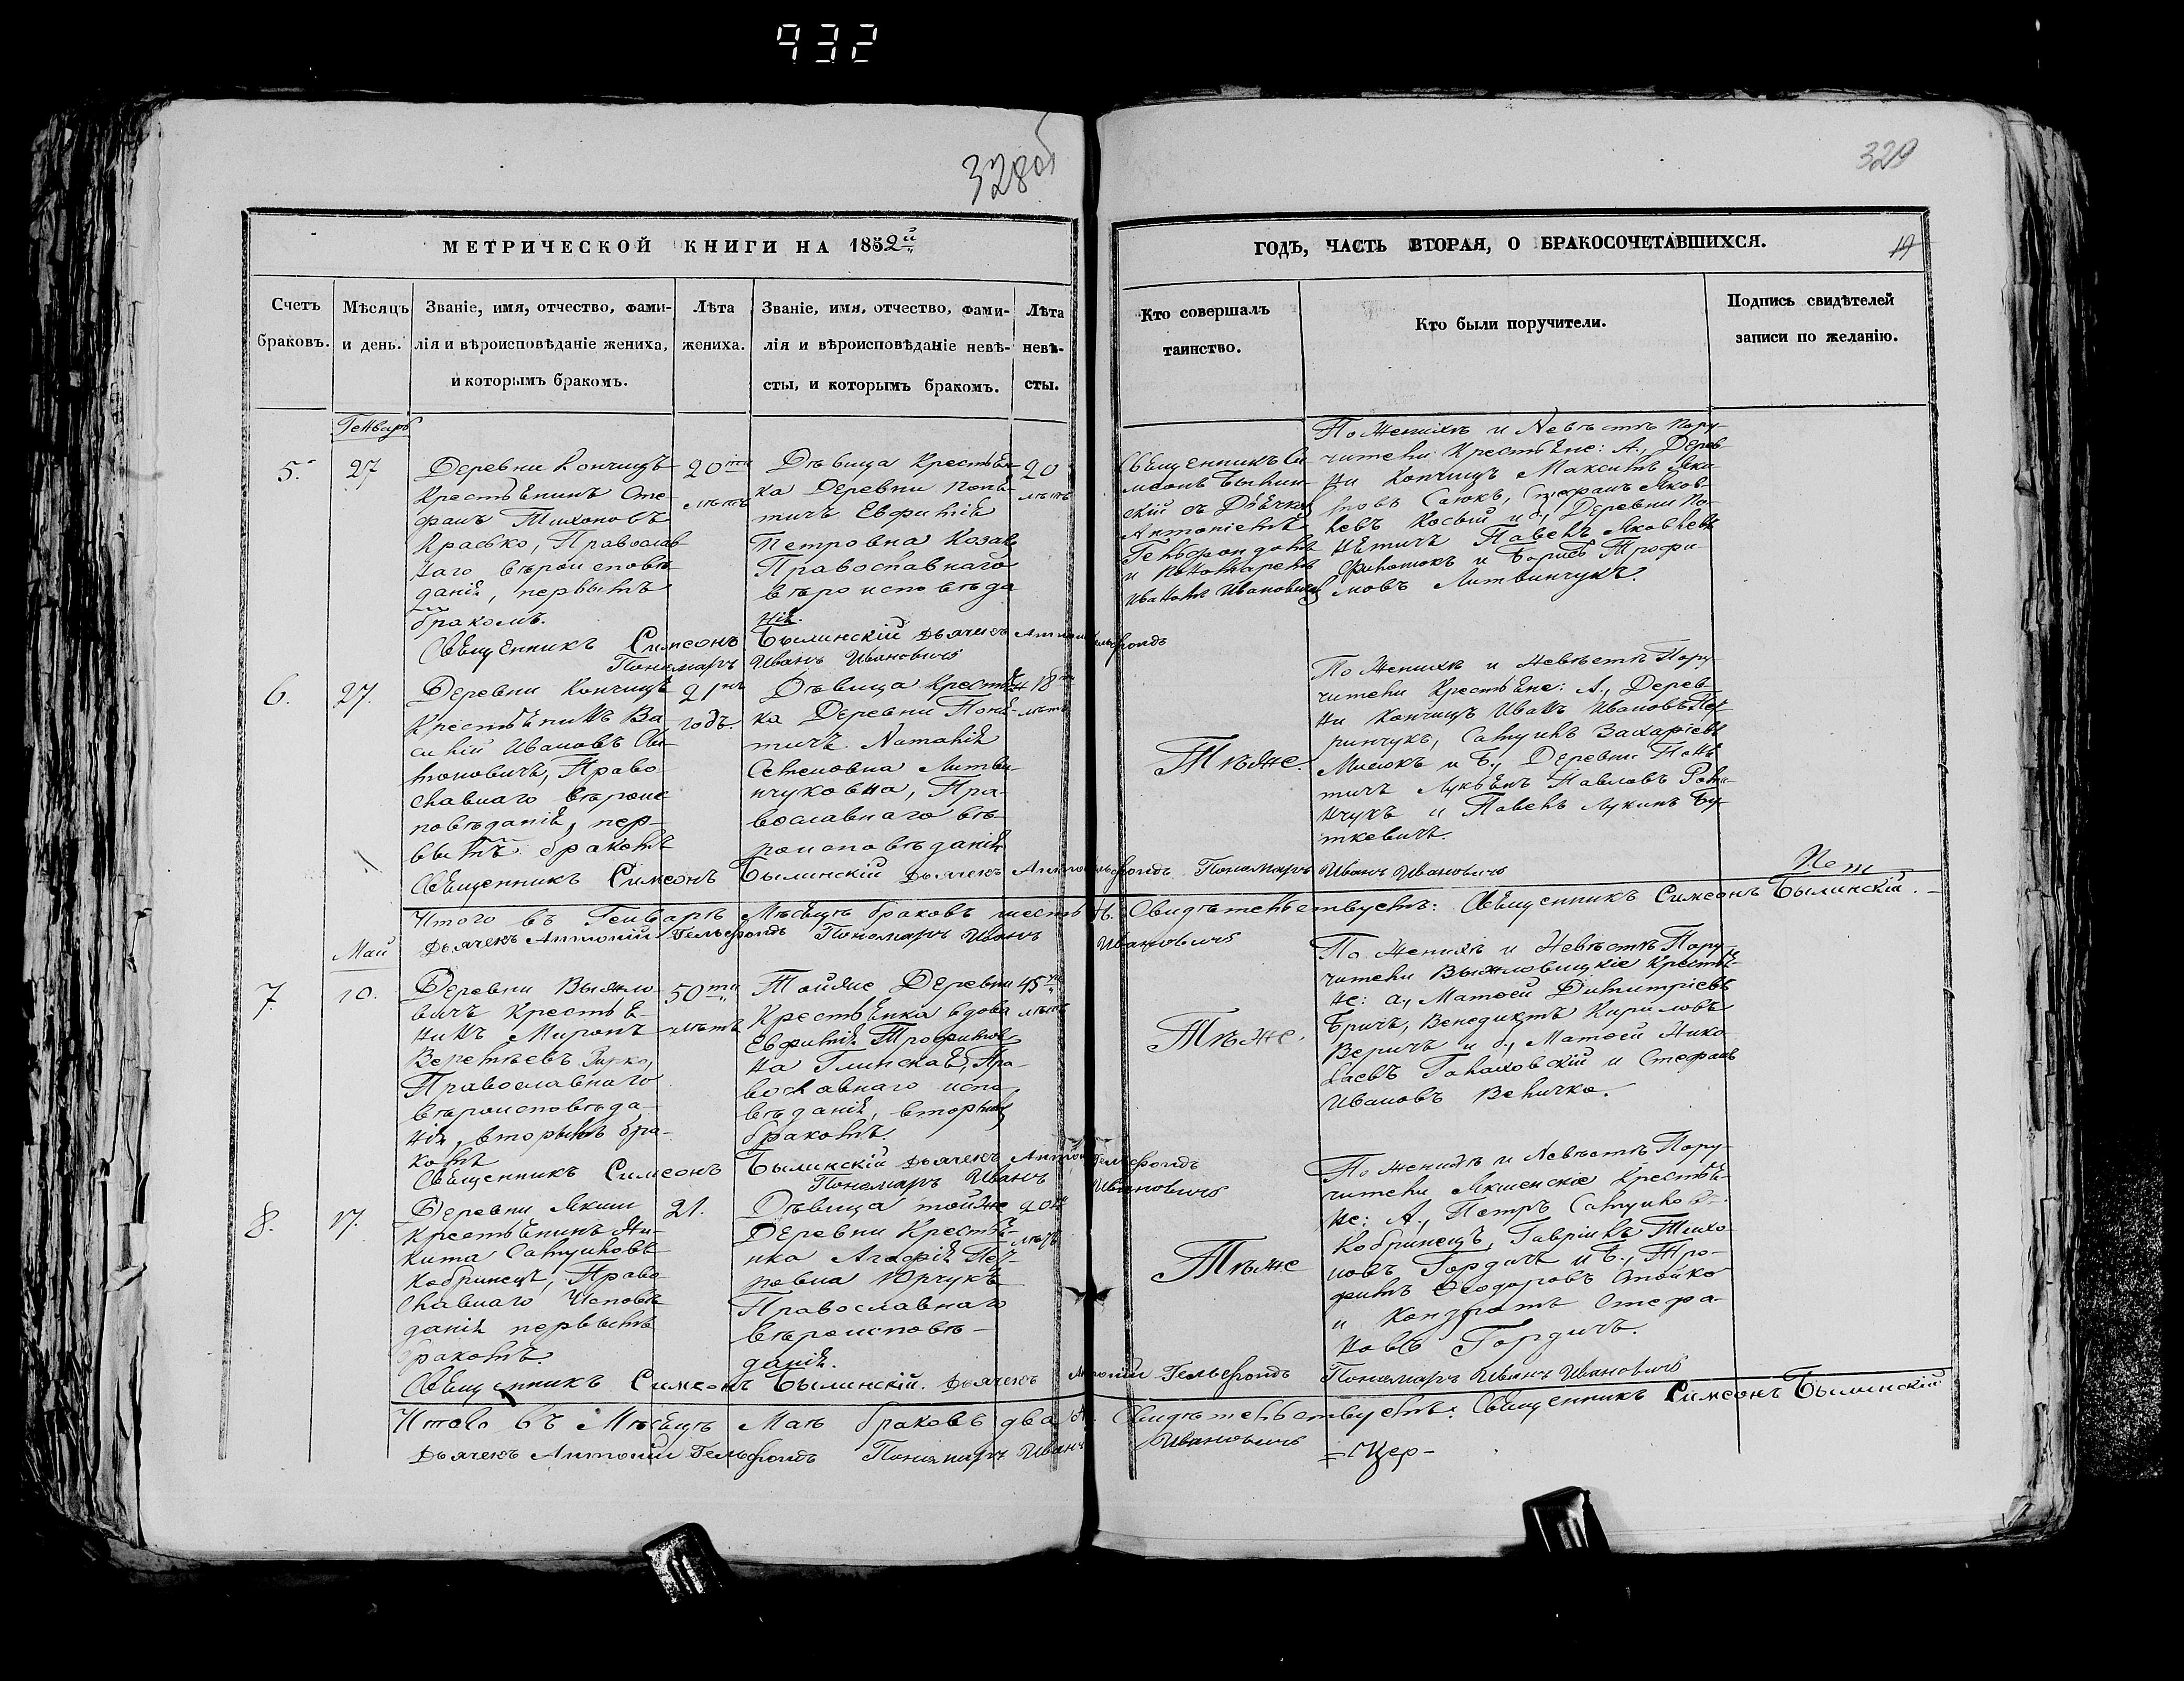 932
328об
329
МЕТРИЧЕСКОЙ КНИГИ НА 1852й
Счетъ
браковъ.
Мѣсяцъ
и день.
Званіе, имя, отчество, фами-
лія и вѣроисповѣданіе жениха,
и которымъ бракомъ.
Лѣта
жениха.
Званіе, имя, отчество, фами-
лія и вѣроисповѣданіе невѣ-
сты, и которымъ бракомъ.
Лѣта
невѣ-
сты.
ГОДЪ, ЧАСТЬ ВТОРАЯ, О БРАКОСОЧЕТАВШИХСЯ.
19
Кто совершалъ
таинство.
Кто были поручители.
Подпись свидѣтелей
записи по желанію.
Генварь
5.
27
Деревни Кончицъ
Крестьянинъ Сте-
фанъ Тихоновъ
Красько, Православ
наго вѣроисповѣ
данія, первымъ
бракомъ.
20ти
лѣтъ
Дѣвица Крестьян
ка Деревни Поня-
тичъ Евфимія
Петровна Козав
Православнаго
вѣроисповѣда
нія.
20
лѣтъ
Священникъ Си
меонъ Былин-
скій съ Дьячкомъ
Антоніемъ
Гельфондомъ
и Пономаремъ
Иваномъ Ивановичемъ
По Женихѣ и Невѣстѣ Пору-
чители Крестьяне: А., Дерев
ни Кончицъ Максимъ Яки
мовъ Саюкъ, Стефанъ Яков-
левъ Косый и б., Деревни По-
нятичъ Павелъ Яковлевъ
Филотокъ и Борисъ Трофи-
мовъ Литвинчукъ.
Священникъ Симеонъ Былинскій Дьячекъ Антоній Гельфондъ
Пономарь Иванъ Ивановичъ
6.
27.
Деревни Кончицъ
Крестьянинъ Ва
силій Ивановъ Ан-
тоновичъ, Право
славнаго вѣроис
повѣданія, пер-
вымъ бракомъ
21нъ
годъ.
Дѣвица Крестьян
ка Деревни Поня-
тичъ Наталія
Семеновна Литви-
нчуковна, Пра-
вославнаго вѣ-
роисповѣданія
18ти
лѣтъ
Тѣже.
По Женихѣ и Невѣстѣ Пору-
чители Крестьяне: А., Дерев-
ни Кончицъ Иванъ Ивановъ Пет
ринчукъ, Самуилъ Захаріевъ
Мисюкъ и Б., Деревни Поня
тичъ Лукьянъ Павловъ Рома-
нчукъ и Павелъ Лукинъ Бу-
ткевичъ.
Священникъ Симеонъ Былинскій Дьячекъ Антоній Гельфондъ Пономарь Иванъ Ивановичъ
Итого въ Генварѣ Мѣсяцѣ браковъ шесть 6. Свидѣтельствуетъ: Священникъ Симеонъ Былинскій.
Дьячекъ Антоній Гельфондъ Пономарь Иванъ Ивановичъ
Май
7.
10.
Деревни Выжло-
вичъ Крестья-
нинъ Миронъ
Веремѣевъ Гирко,
Православнаго
вѣроисповѣда
нія, вторымъ бра-
комъ
50ти
лѣтъ
Тойже Деревни
Крестьянка вдова
Евфимія Трофимов
на Глинская, Пра-
вославнаго испо
вѣданія, вторымъ
бракомъ.
45ти
лѣтъ
Тѣже.
По Женихѣ и Невѣстѣ Пору-
чители Выжловицкіе Крестья-
не: а., Матөей Димитріевъ
Бричъ, Венедиктъ Кириловъ
Веричъ и б., Матөей Нико
лаевъ Галаховскій и Стефанъ
Ивановъ Величко.
Священникъ Симеонъ Былинскій Дьячекъ Антоній Гельфондъ
Пономарь Иванъ Ивановичъ
8.
17.
Деревни Якши
Крестьянинъ Ни-
кита Самуиловъ
Кобринецъ, Право
славнаго Исповѣ
данія первымъ
бракомъ.
21.
Дѣвица тойже
Деревни Крестья-
нка Агафія Пет-
ровна Юрчукъ
Православнаго
вѣроисповѣ-
данія.
20ти
лѣтъ
Тѣже
По Женихѣ и Невѣстѣ Пору-
чители Якшенскіе Крестья-
не: А., Петръ Самуиловъ
Кобринецъ, Гавріилъ Тихо-
новъ Гордичъ и Б., Тро-
фимъ Өеодоровъ Стойко
и Кондратъ Стефа-
новъ Гордичъ.
Священникъ Симеонъ Былинскій. Дьячекъ Антоній Гельфондъ Пономарь Иванъ Ивановичъ
Итого въ Мѣсяцѣ Маѣ браковъ два Свидѣтельствуетъ: Священникъ Симеонъ Былинскій
Дьячекъ Антоній Гельфондъ Пономарь Иванъ Ивановичъ